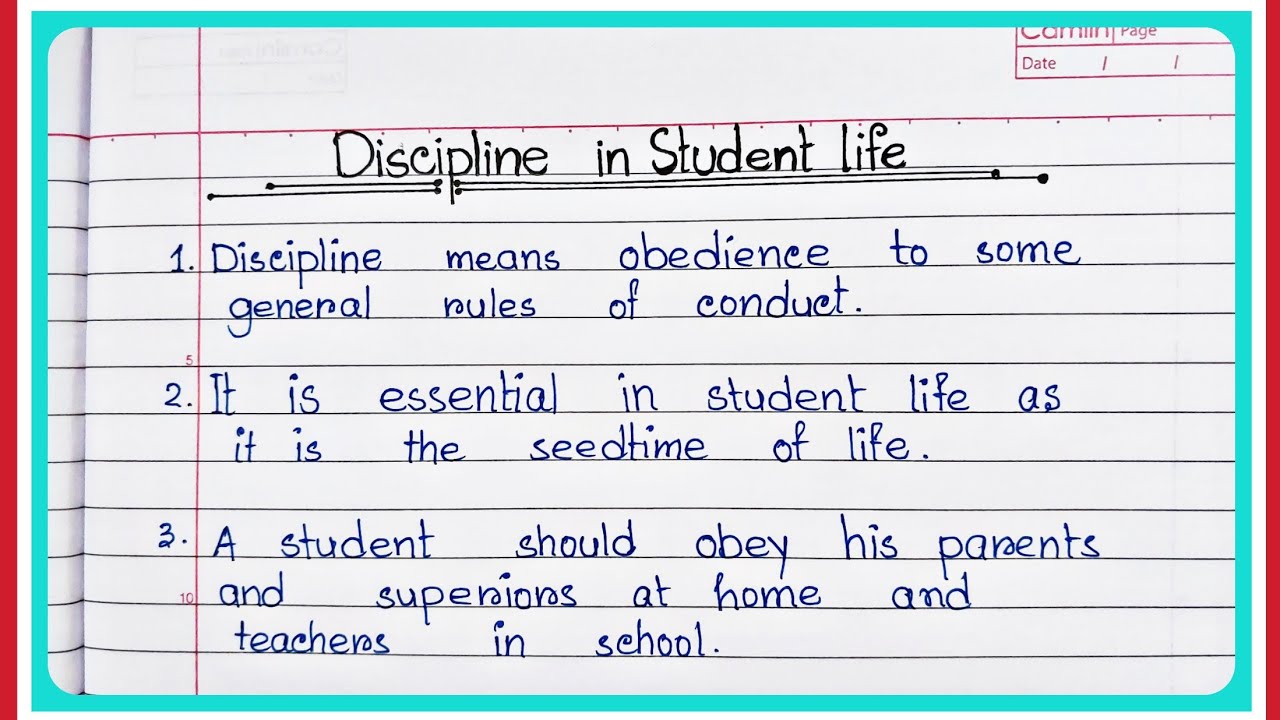 Camlin Page
Date / /
Discipline in Student life
1. Discipline means obedience to some
general rules of conduct.
5
2. It is essential in student life as
it is the seedtime of life.
3. A student should obey his parents
10 and superiors at home and
teachers in school.